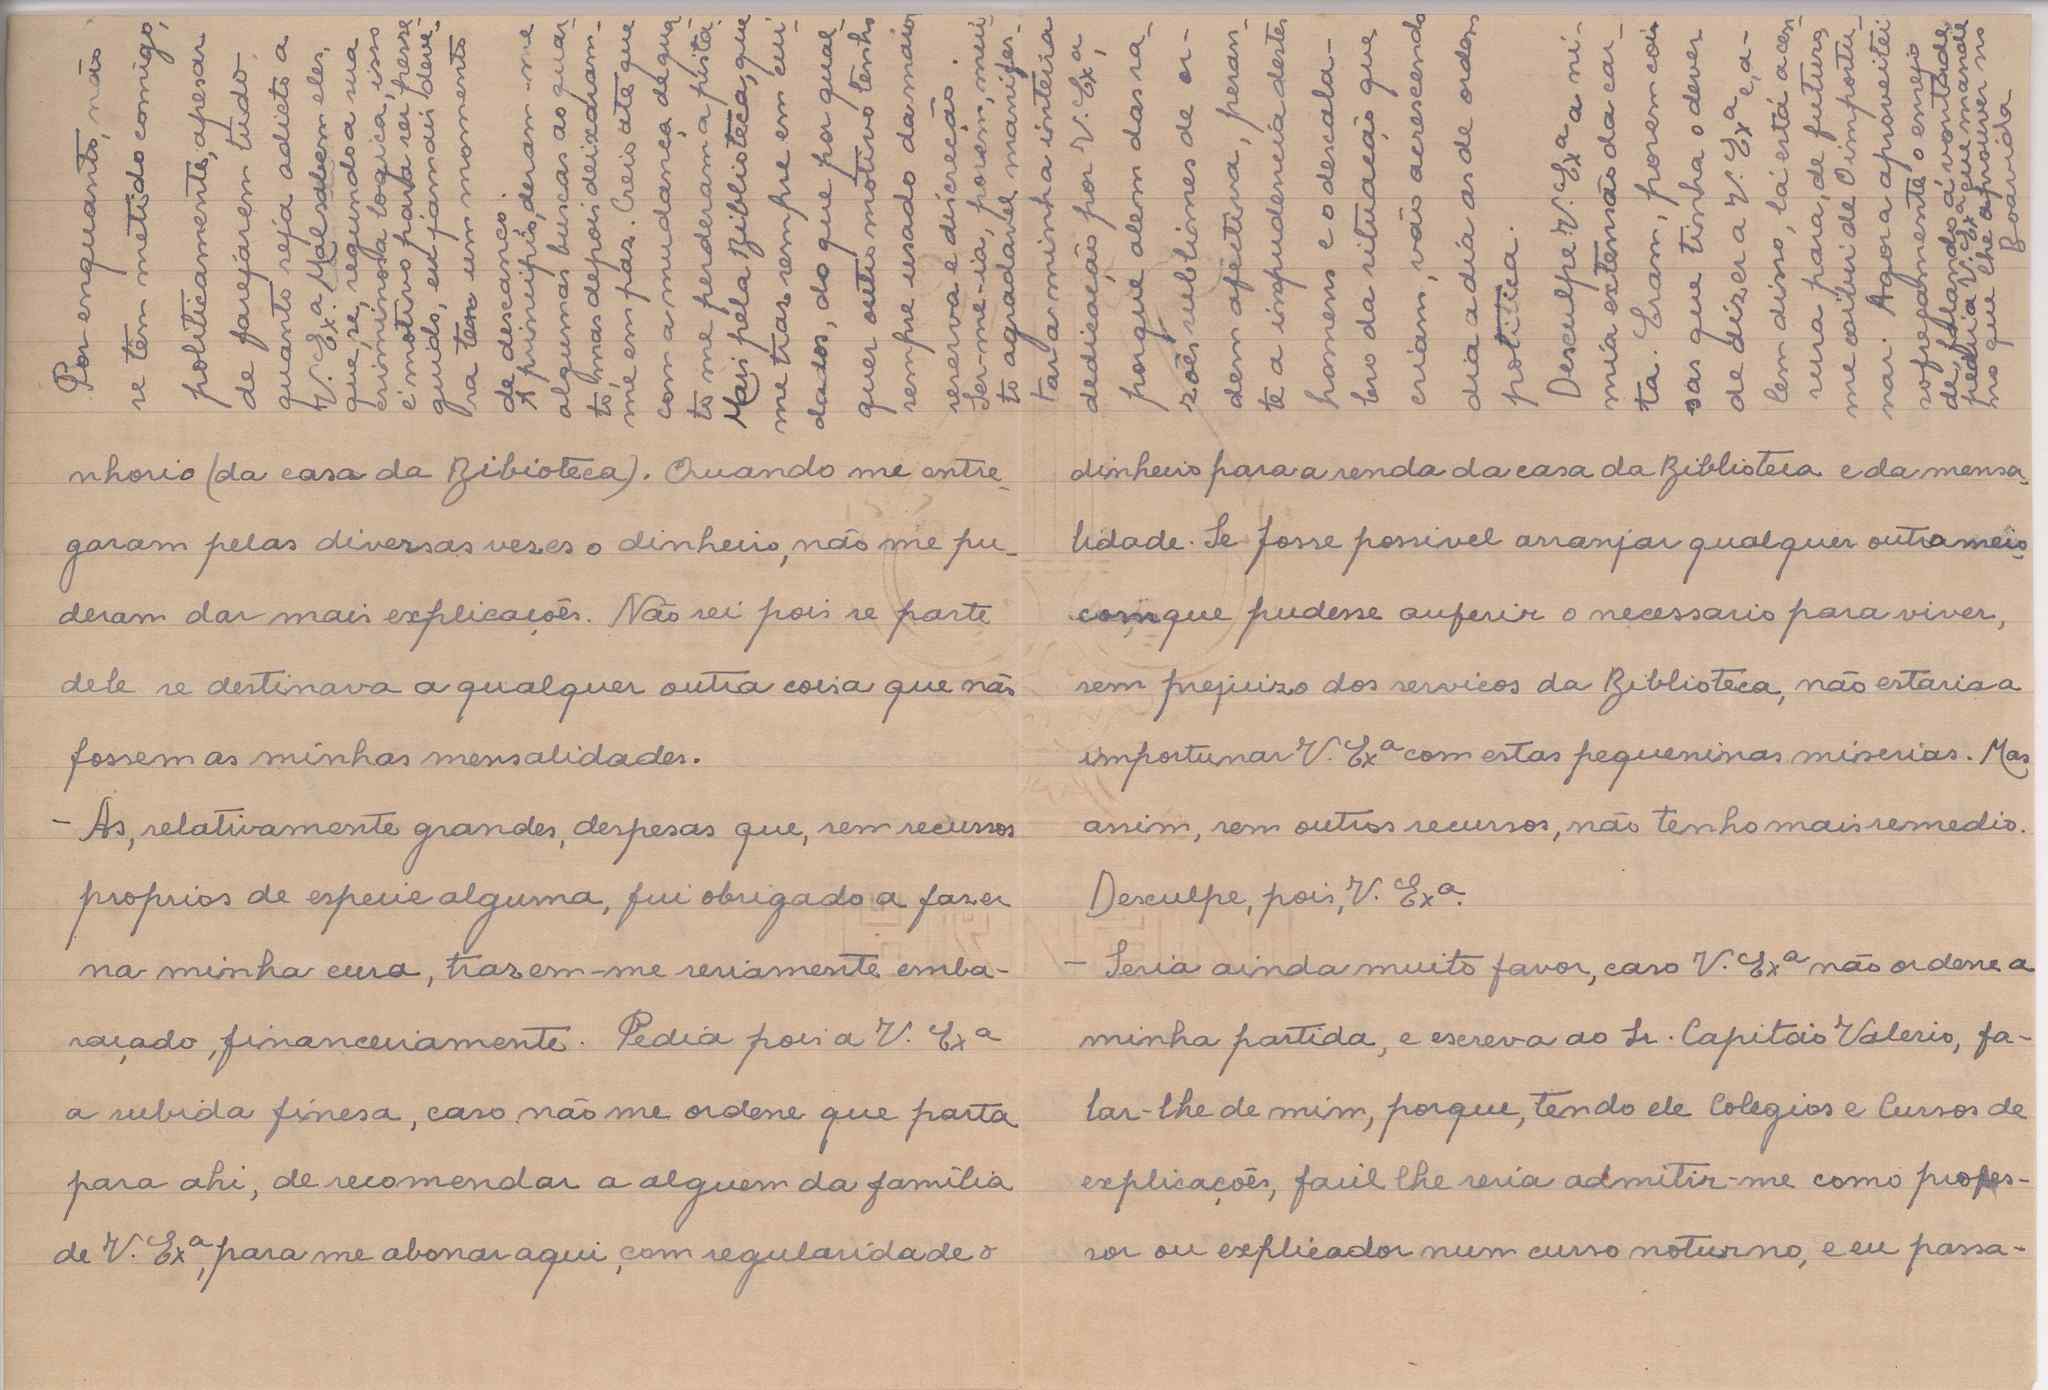 nhorio (da casa da Bibioteca). Quando me entre-
garam pelas diversas vezes o dinheiro, não me pu-
deram dar mais explicações. Não sei pois se parte
dele se destinava a qualquer outra coisa que não
fossem as minhas mensalidades.
- As, relativamente grandes, despesas que, sem recursos
proprios de especie alguma, fui obrigado a fazer
na minha cura, trazem-me seriamente emba-
raçado, financeiramente. Pedia pois a V. Exª
a subida finesa, caso não me ordene que parta
para ahi, de recomendar a alguem da família
de V. Exª, para me abonar aqui, com regularidade o
dinheiro para a renda da casa da Biblioteca e da mensa-
lidade. Se fosse possivel arranjar qualquer outro meio
com que pudesse auferir o necessario para viver,
sem prejuizo dos servicos da Biblioteca, não estaria a
importunar V. Exª com estas pequeninas miserias. Mas
assim, sem outros recursos, não tenho mais remedio.
Desculpe, pois, V. Exª.
- Seria ainda muito favor, caso V. Exª não ordene a
minha partida, e escreva ao Sr. Capitão Valerio, fa-
lar-lhe de mim, porque, tendo ele Colegios e Cursos de
explicações, facil lhe seria admitir-me como profes-
sor ou explicador num curso noturno, e eu passa-
Por enquanto, não
se tem metido comigo,
politicamente, apesar
de farejarem tudo
quanto seja adicto a
V. Exª. Mal sabem eles,
que, se, segundo a sua
criminosa logica, isso
é motivo para ser perse-
guido, eu jamais deve-
ra ter um momento
de descanço.
A principio, deram-me
algumas buscas ao quar-
to, mas depois deixaram-
me em paz. Creio até que
com a mudança de quar-
to me perderam a pista.
Mais pela Biblioteca, que
me traz sempre em cui-
dados, do que por qual-
quer outro motivo tenho
sempre usado da maior
reserva e discreção.
Ser-me-ia, porem, mui-
to agradavel manifes-
tar a minha inteira
dedicação por V. Exª,
porque alem das ra-
zões sublimes de or-
dem afectiva, peran-
te a impudencia destes
homens e o descala-
bro da situação que
criam, vão acrescendo
dia a dia as de ordem
politica.
Desculpe V. Exª a ni-
mia extensão da car-
ta. Eram, porem coi-
sas que tinha o dever
de dizer a V. Exª e, a-
lem disso, lá está a cen-
sura para, de futuro,
me coibir de O importu-
nar. Agora aproveitei
sofregamente o ensejo
de, falando á vontade,
pedir a V. Exª que mande
no que lhe aprouver no
Boavida